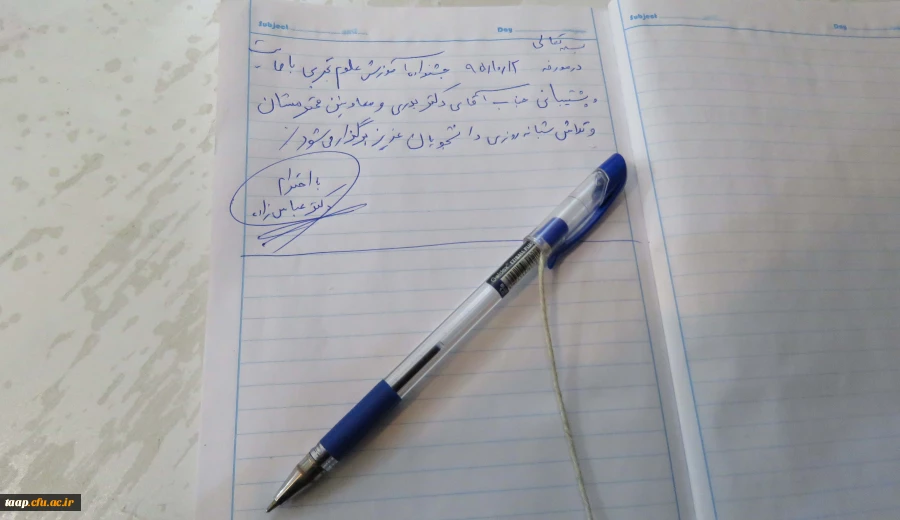 Subject
Day
Subject
Day
بسمه تعالی
در مورخه ۹۵/۱۰/۱۲ جشنواره آموزش علوم تجربی با حمایت
و پشتیبانی جناب آقای دکتر و معاونین محترمشان
و تلاش شبانه روزی دانشجویان عزیز برگزار می شود /
با احترام
دکتر عباس زاده
taap.cfu.ac.ir